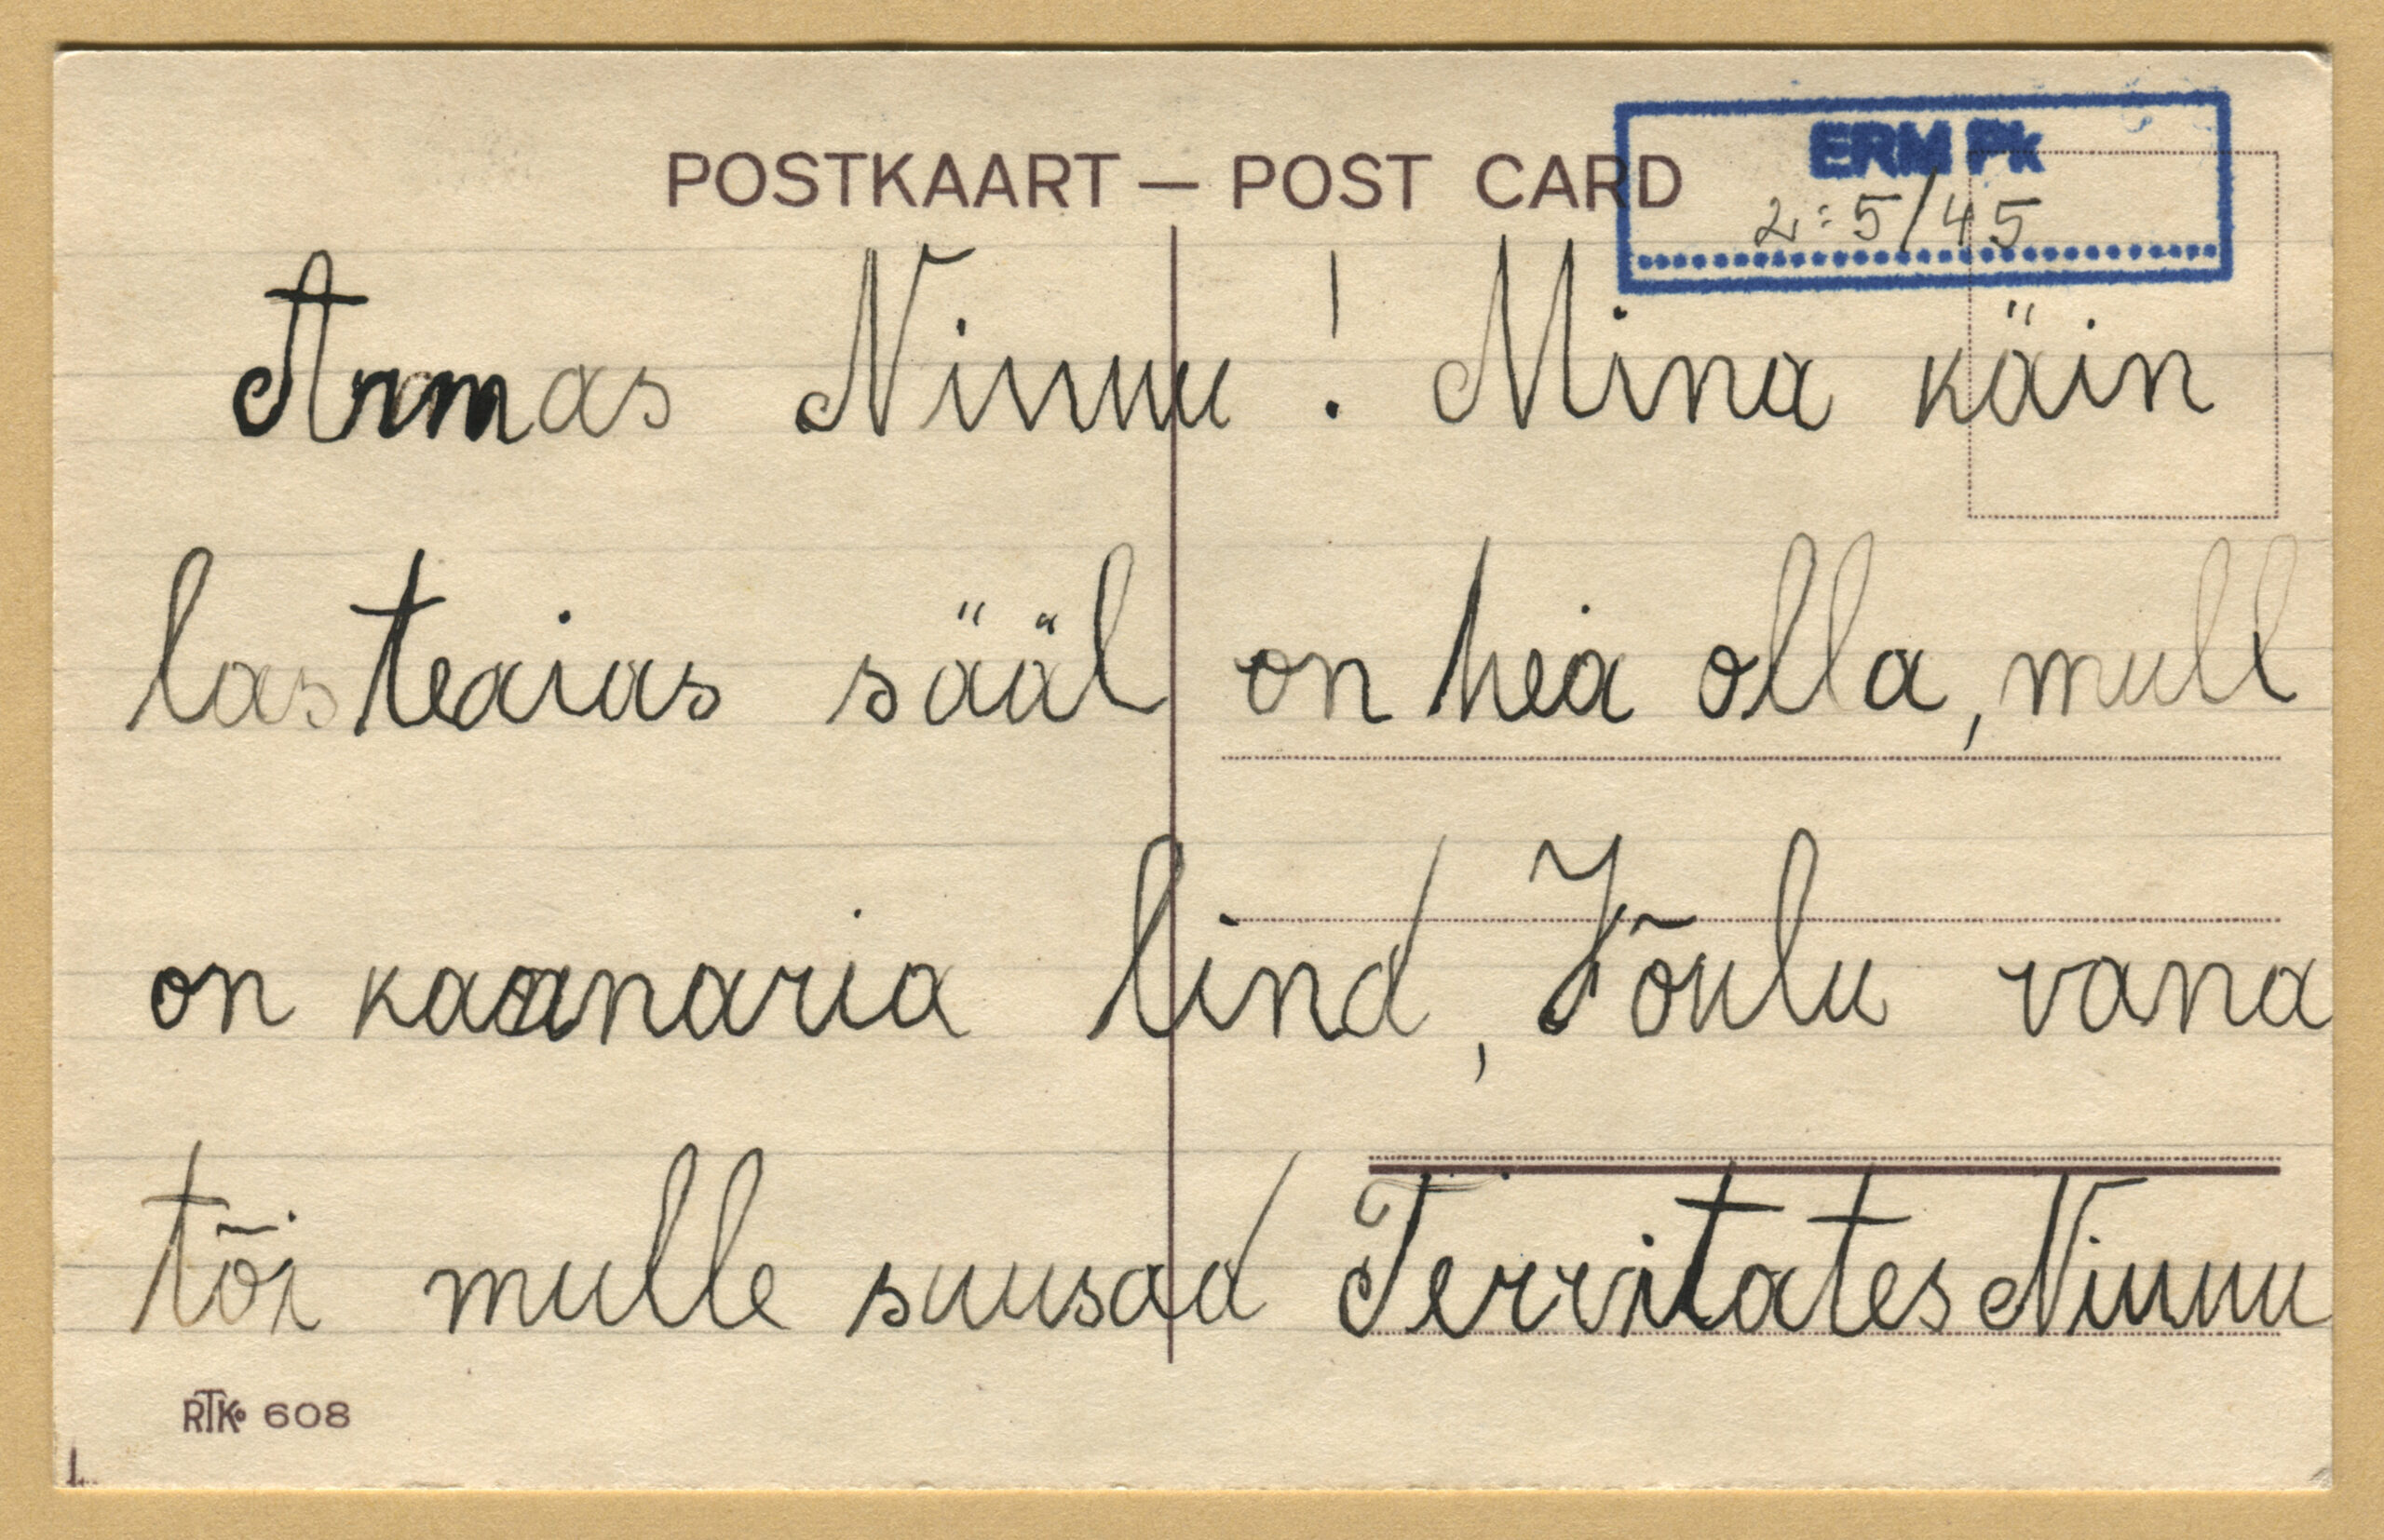 POSTKAART — POST CARD
ERM Pk
2:5/45
Armas Ninnu! Mina käin
lasteaias sääl on hea olla, mull
on kaanaria lind, Jõulu vana
tõi mulle suusad Tervitates Ninnu
RTK 608